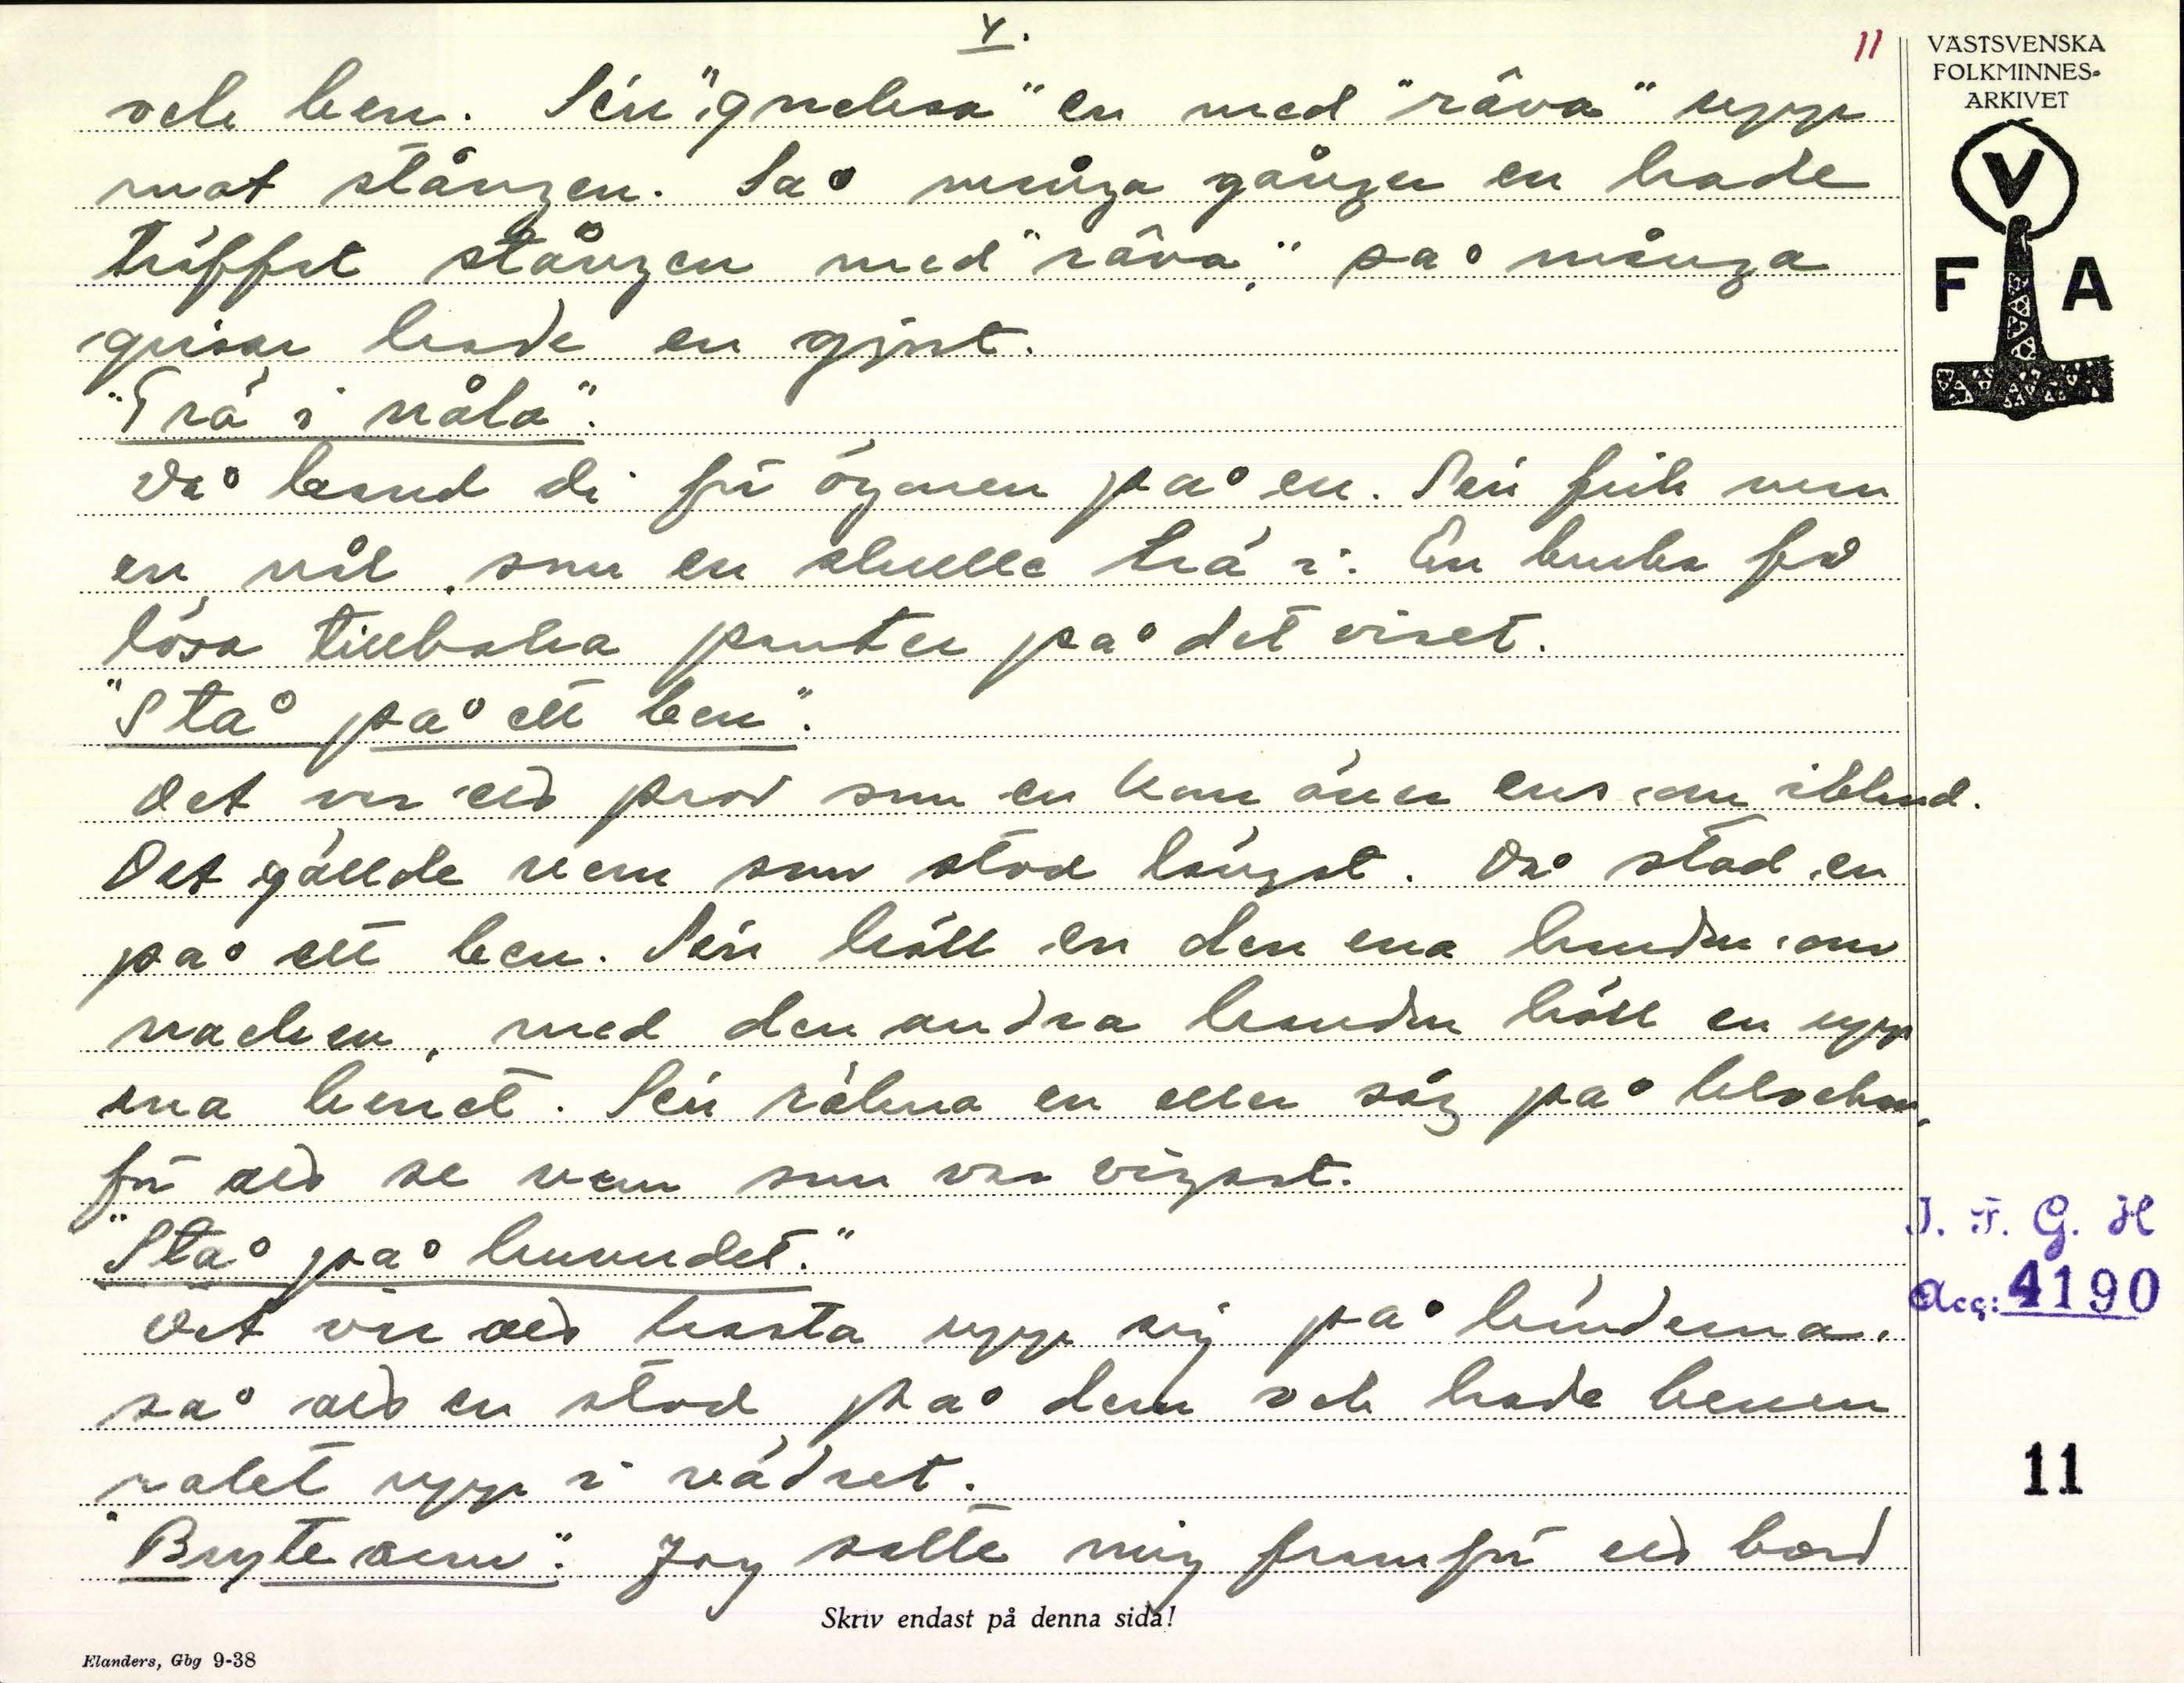 4.
11
VÄSTSVENSKA
FOLKMINNES-
ARKIVET
V
F A
och ben. Sén "gneka" en med "räva" upp
mot stången. Så många gånger en hade
träffat stången med "räva," så många
grisar hade en gjort.
"Trä i nåla".
Då band di för ögonen på en. Sén fick men
en nål, som en skulle trä i. En bruka få
lösa tillbaka panter på det viset.
"Stå på ett ben".
Det var ett prov som en kom över ens om ibland.
Det gällde vem som stod längst. Då stod en
på ett ben. Sén höll en den ena handen om
nacken, med den andra handen höll en upp
ena benet. Sén räkna en eller såg på klockan,
för att se vem som var vigast.
"Stå på huvudet."
Det var att kasta upp sig på händerna,
så att en stod på dem och hade benen
rakt upp i vädret.
"Bryte arm". Jag satte mig framför ett bord
Skriv endast på denna sida!
Elanders, Gbg 9-38
I. F. G. H
Acc: 4190
11